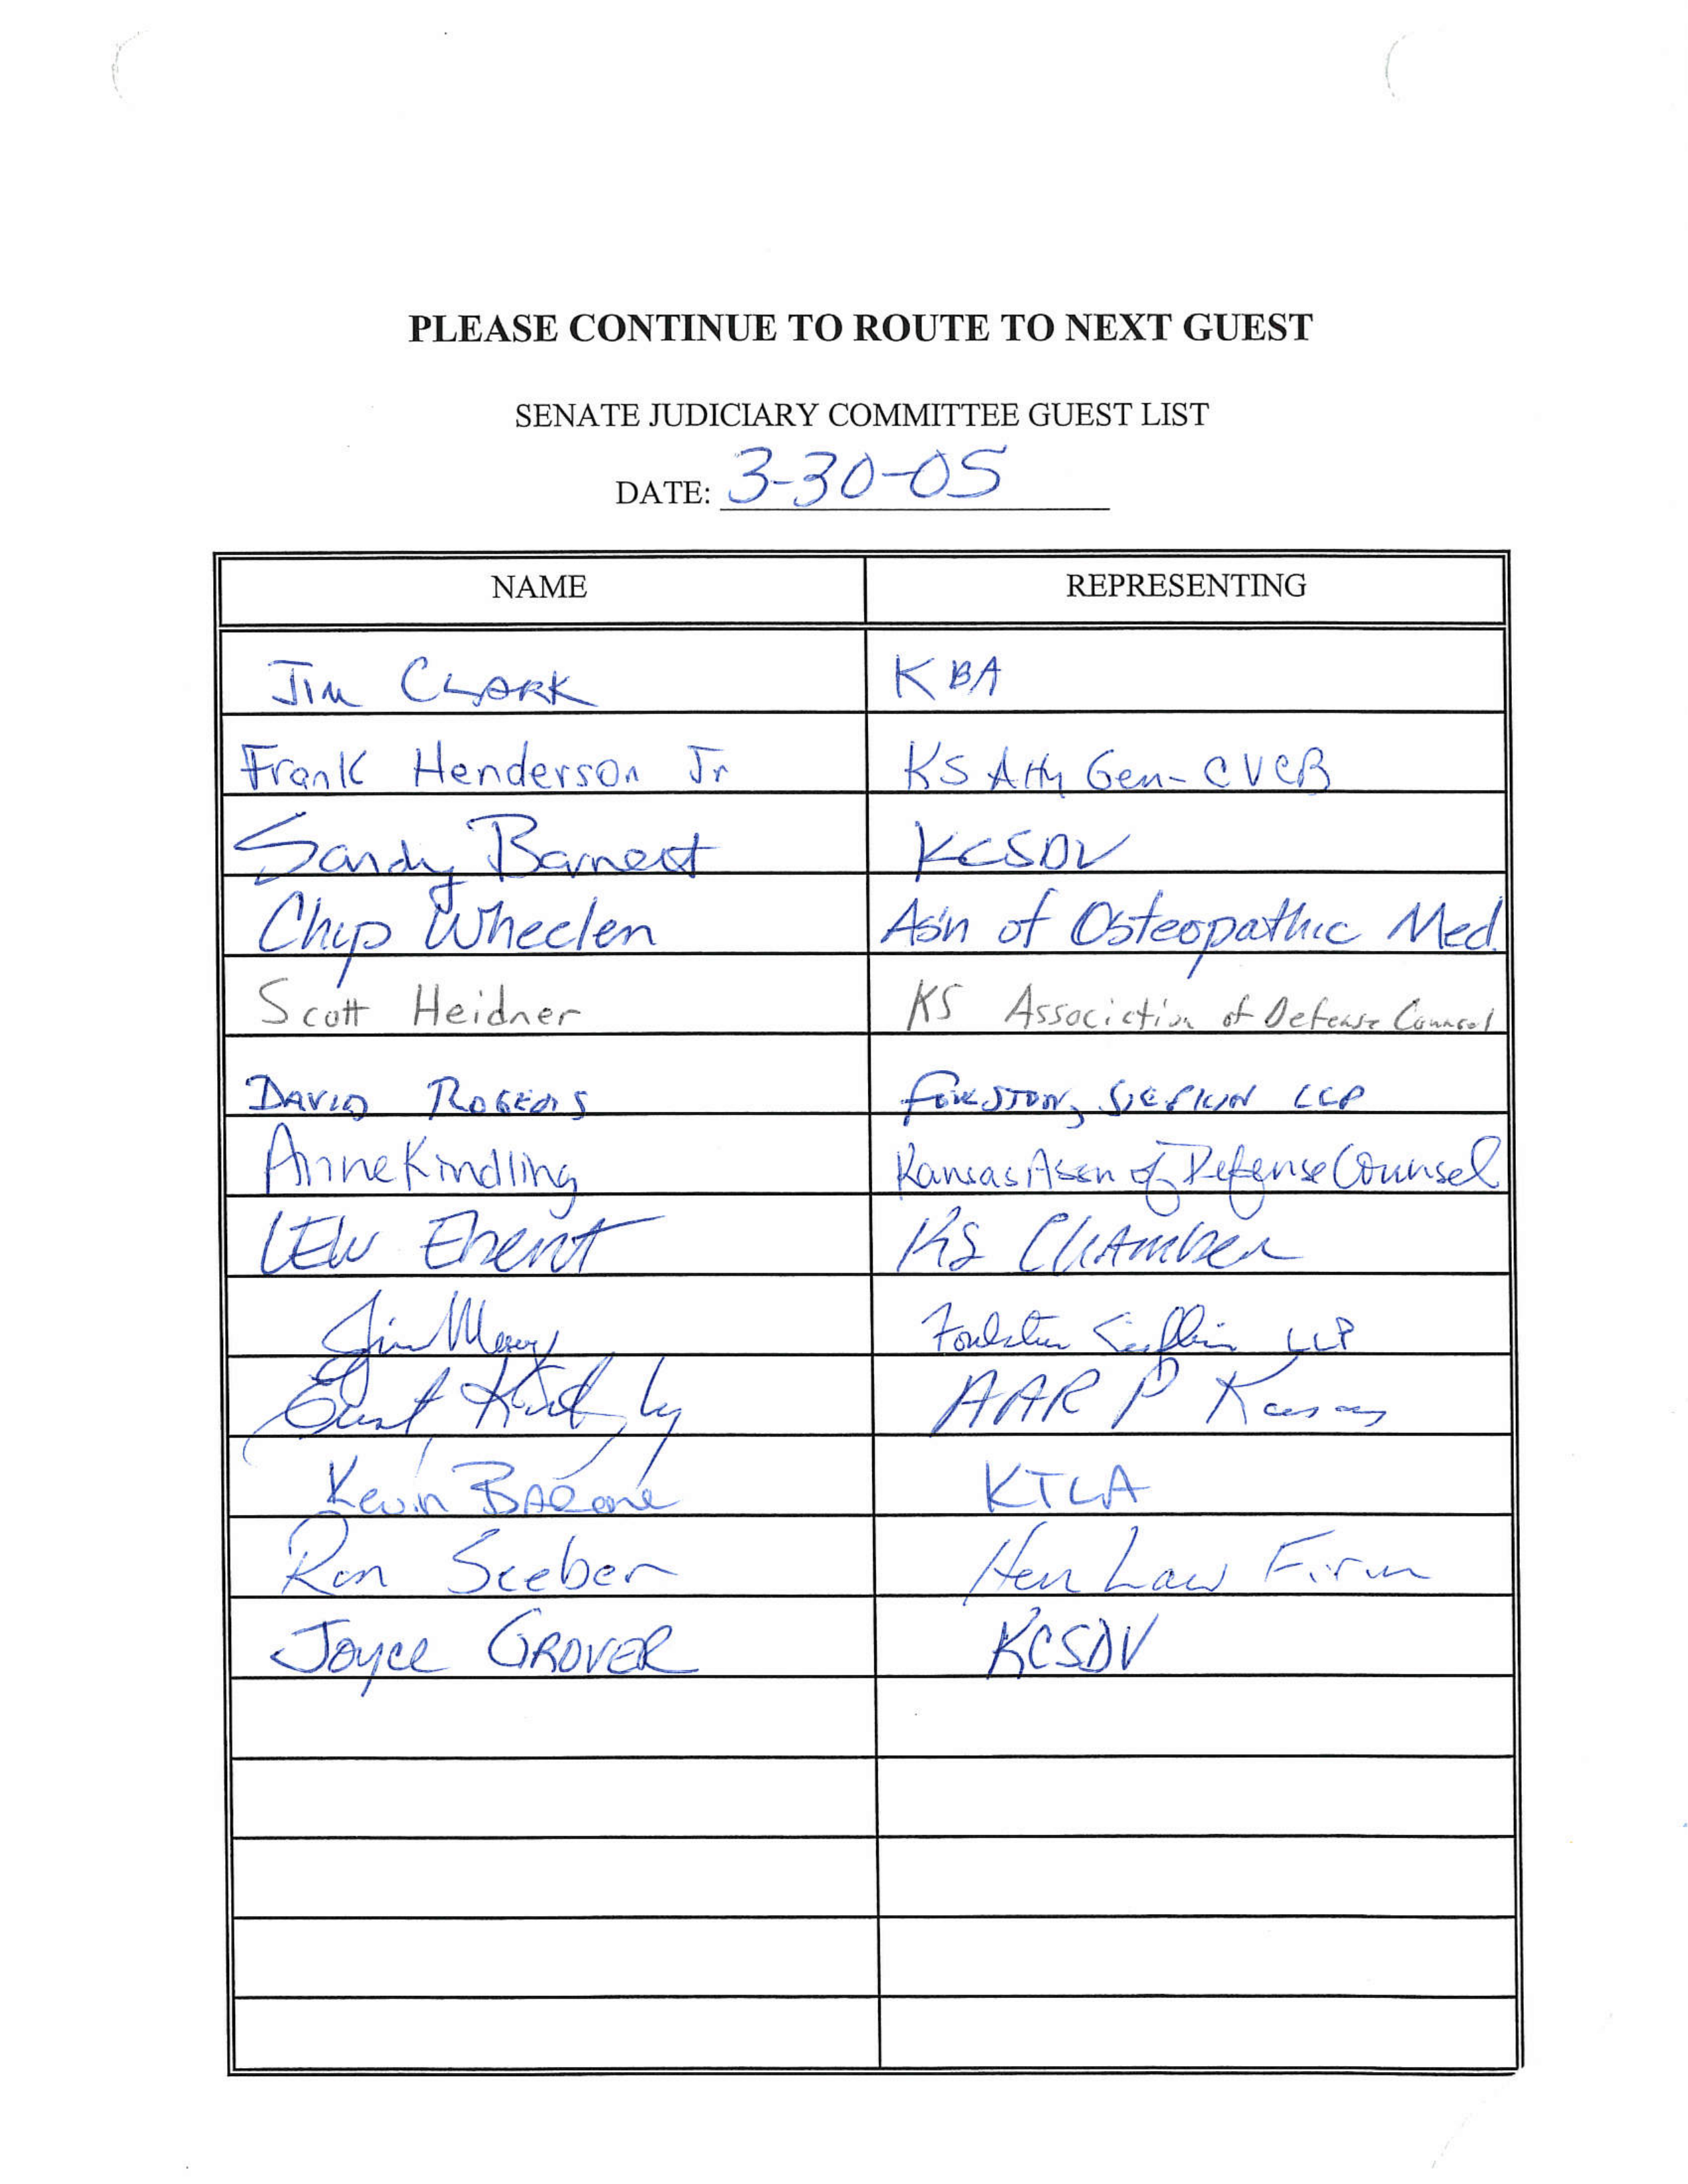 PLEASE CONTINUE TO ROUTE TO NEXT GUEST
SENATE JUDICIARY COMMITTEE GUEST LIST
DATE: 3-30-05
NAME REPRESENTING
Jim Clark KBA
Frank Henderson Jr KS Atty Gen-CVCB
Sandy Barnett KCSDV
Chip Wheelen Ass'n of Osteopathic Med.
Scott Heidner KS Association of Defense Counsel
DAVID ROGERS FOULSTON, SIEFKIN LLP
Anne Kindling Kansas Assn of Defense Counsel
LEW Ebert KS Chamber
Jim Foulston Siefkin LLP
AARP Kansas
Kevin Barone KTLA
Ron Seeber Hein Law Firm
Joyce GROVER KCSDV